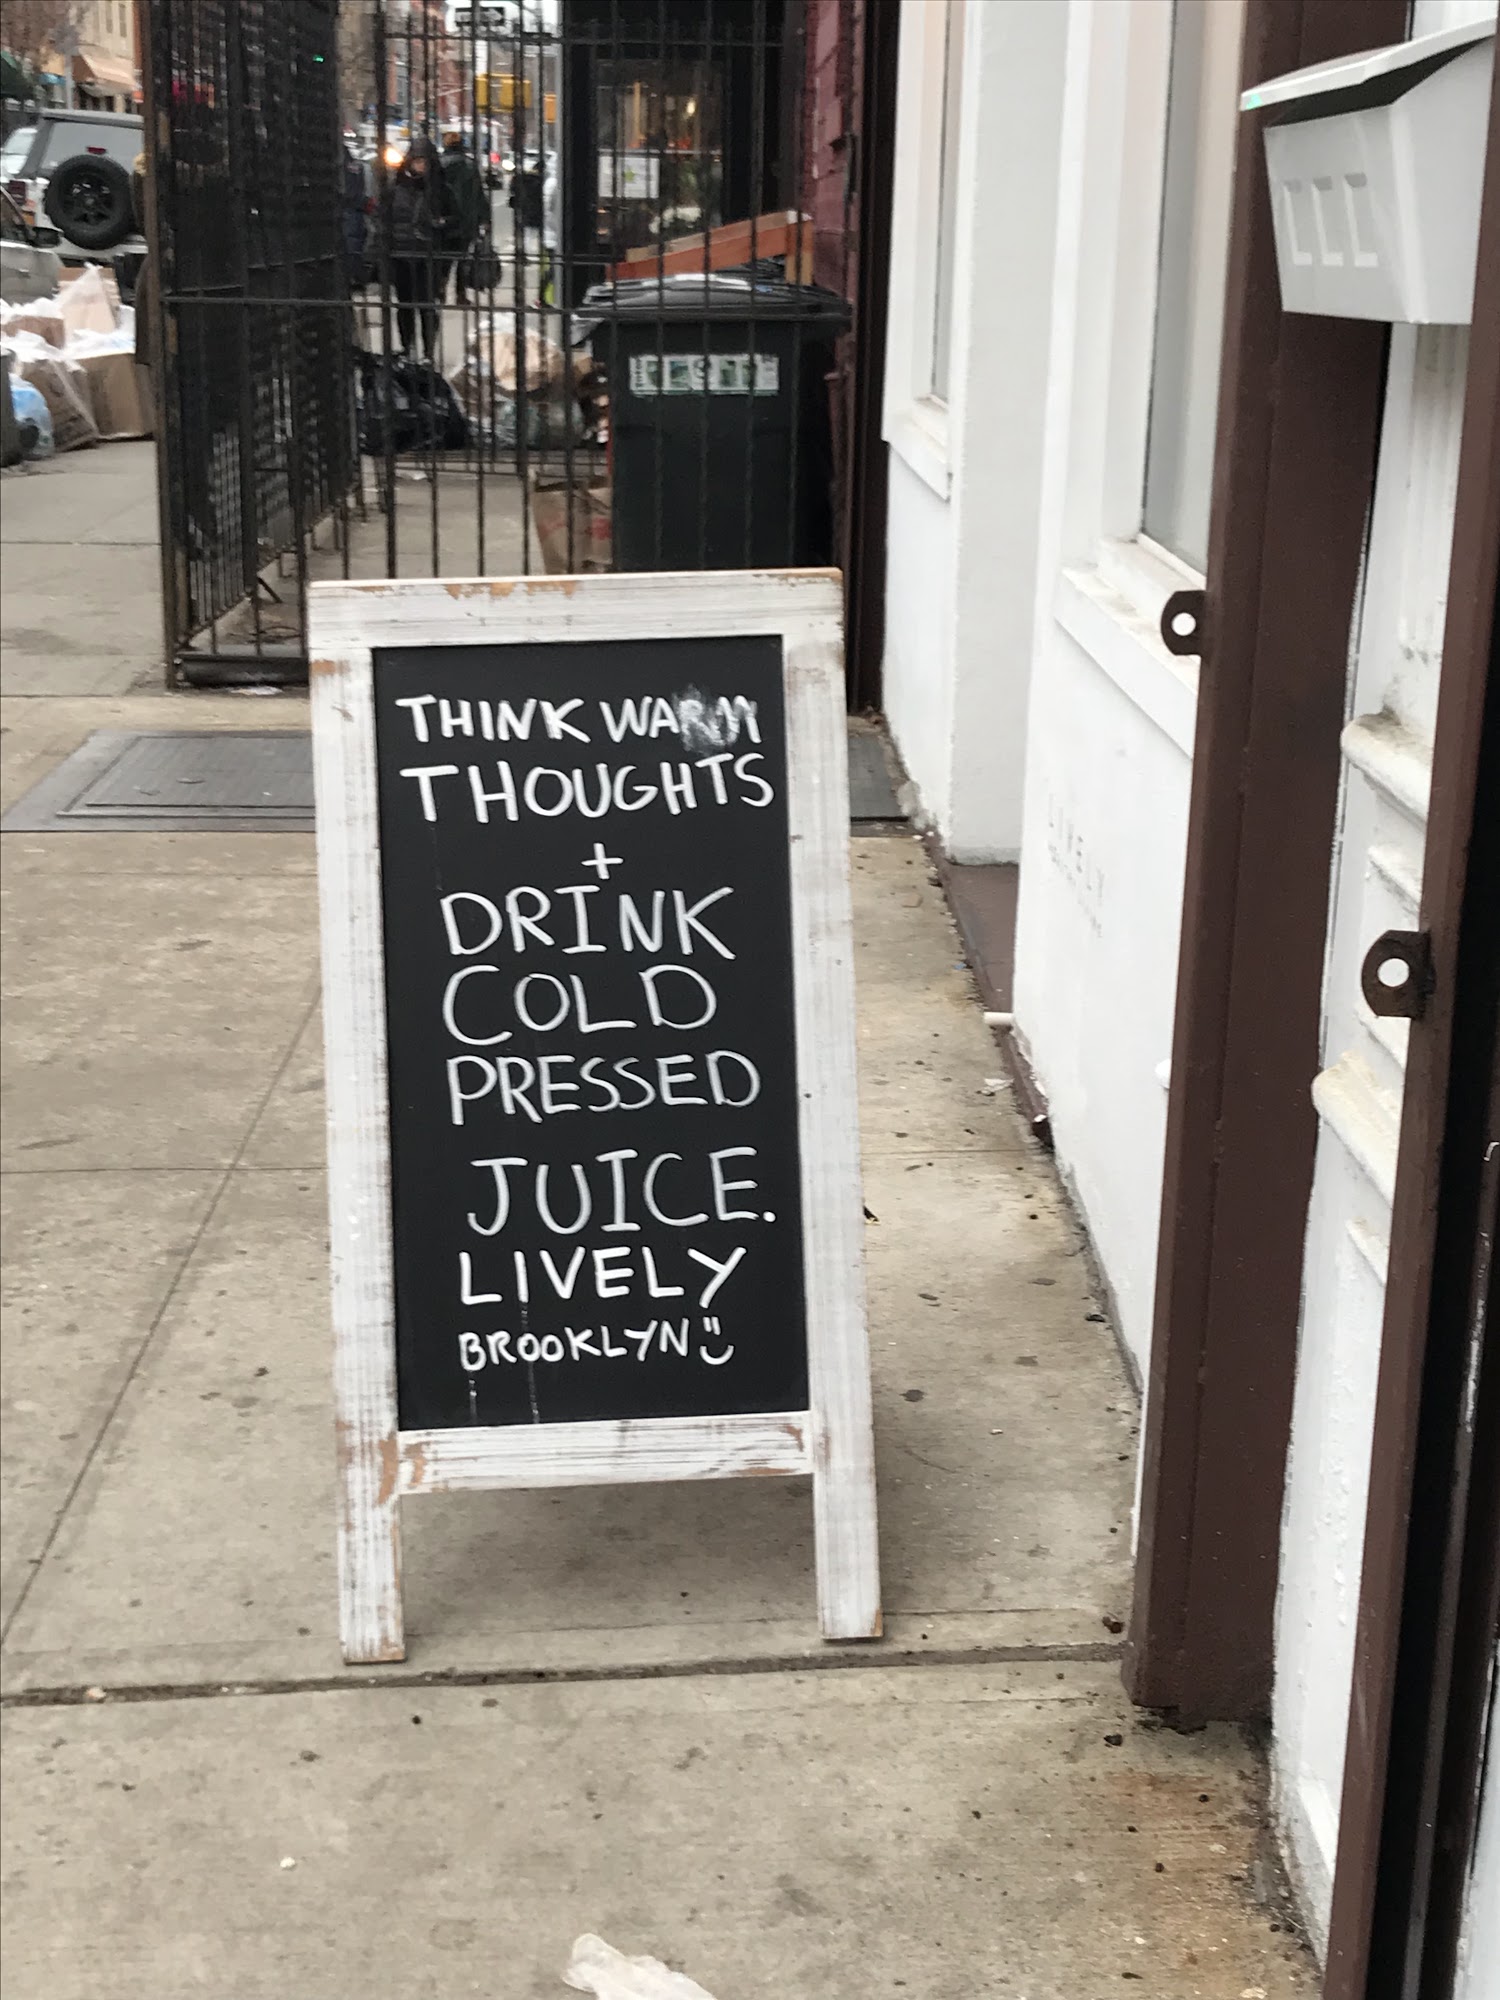 THINK WARM
THOUGHTS
+
DRINK
COLD
PRESSED
JUICE.
LIVELY
BROOKLYN
LIVELY